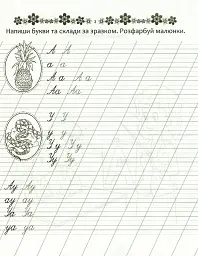 3
Напиши букви та склади за зразком. Розфарбуй малюнки.
А А
а а
А а А а
Аа Аа
У У
у у
У у У у
Уу Уу
Ау Ау
ау ау
Уа Уа
уа уа